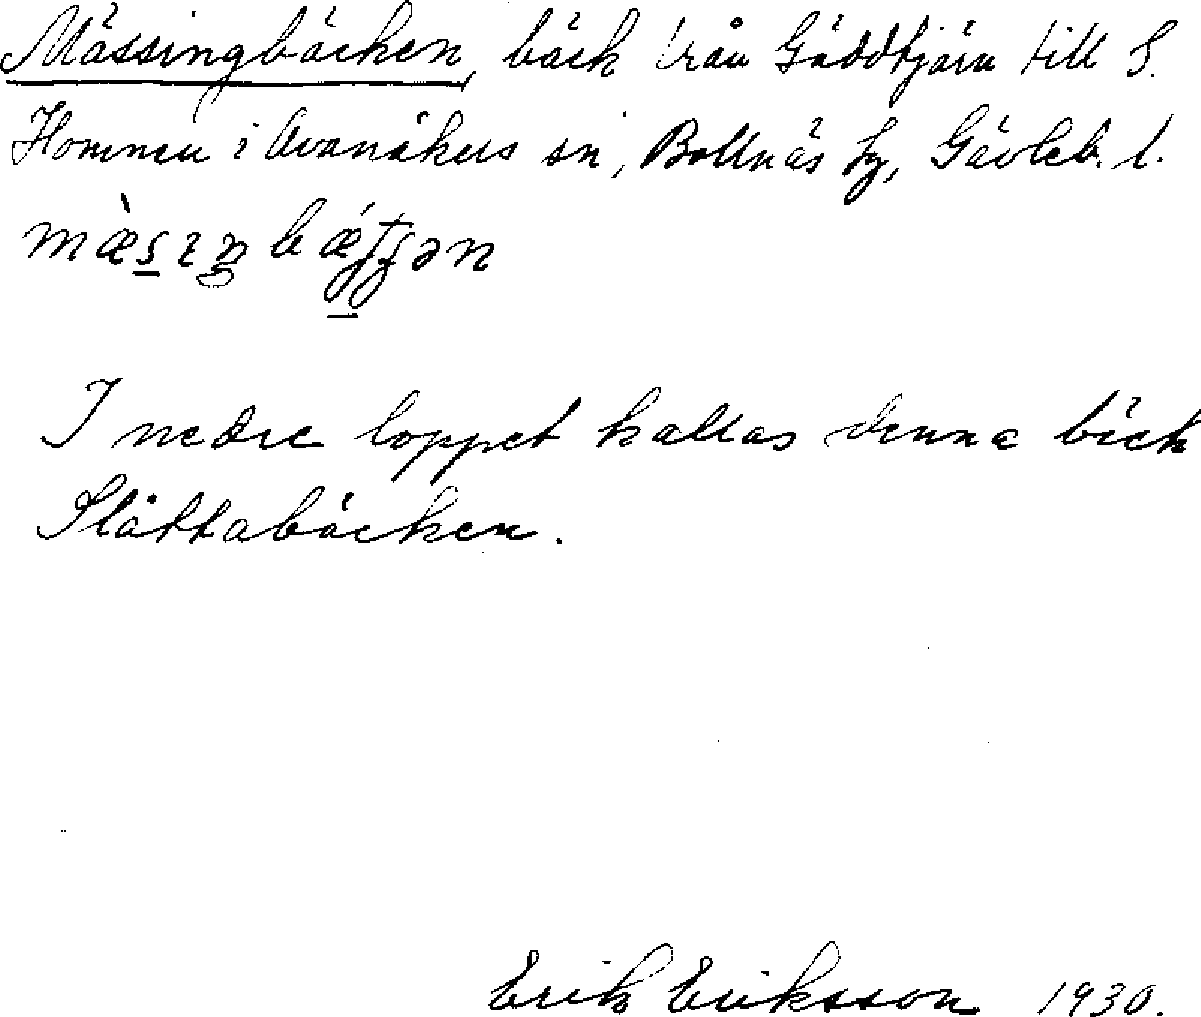 Mässingbäcken, bäck från Gäddtjärn till S.
Hommen i Alfta sn, Bollnäs fg, Gävleb. l.
mæ̀sıŋbǽtʃən
I nedre loppet kallas denna bäck
Slåttabäcken.
Erik Eriksson 1930.